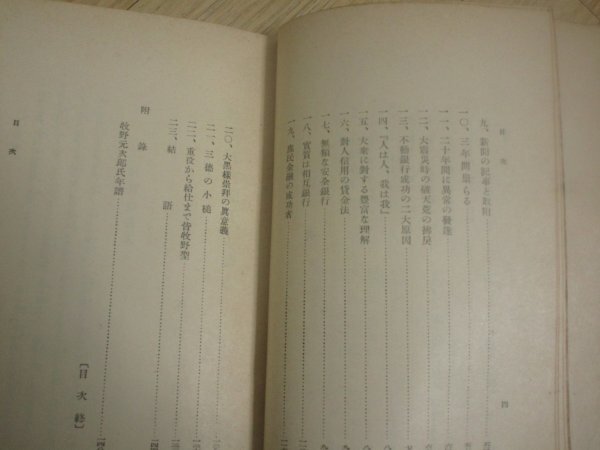 目次
四
九、新聞の記事と取附
一〇、三年間眠らる
一一、二十年間に異常の發達
一二、大震災時の破天荒の拂戻
一三、不動銀行成功の二大原因
一四、『人は人、我は我』
一五、大衆に對する豐富な理解
一六、對人信用の貸金法
一七、無類な安全銀行
一八、實質は相互銀行
一九、庶民金融の成功者
二〇、大黑樣崇拜の眞意義
二一、三德の小槌
二二、重役から給仕まで皆牧野型
二三、結語
附錄
牧野元次郎氏年譜
〔目次終〕
目次